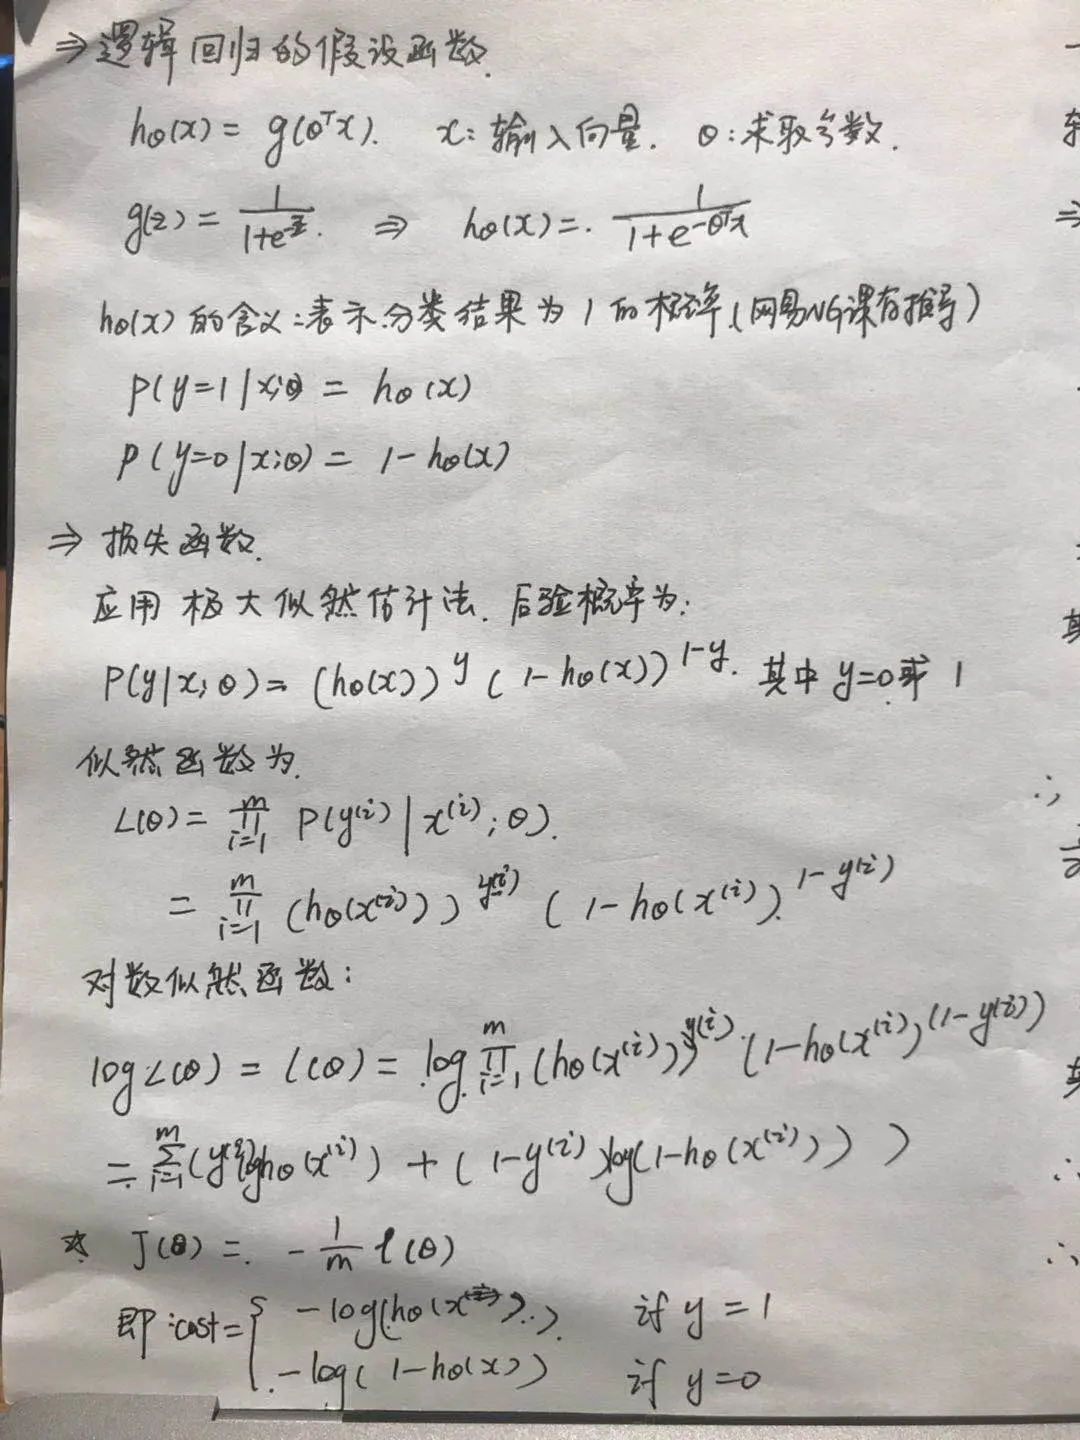 ⇒ 逻辑回归的假设函数.
hθ(x) = g(θᵀx). x: 输入向量. θ: 求取参数.
g(z) = 1/(1+e^-z). ⇒ hθ(x) = 1/(1+e^-θᵀx)
hθ(x) 的含义: 表示分类结果为 1 的概率 (网易NG课有推导)
P(y=1|x;θ) = hθ(x)
P(y=0|x;θ) = 1-hθ(x)
⇒ 损失函数.
应用 极大似然估计法. 后验概率为:
P(y|x;θ) = (hθ(x))^y (1-hθ(x))^1-y. 其中 y=0 或 1
似然函数为.
L(θ) = ∏_{i=1}^m P(y^(i) | x^(i); θ).
= ∏_{i=1}^m (hθ(x^(i)))^y^(i) (1-hθ(x^(i))^1-y^(i)
对数似然函数:
log L(θ) = l(θ) = log ∏_{i=1}^m (hθ(x^(i)))^y^(i) (1-hθ(x^(i))^(1-y^(i))
= ∑_{i=1}^m (y^(i) log hθ(x^(i)) + (1-y^(i)) log(1-hθ(x^(i))))
☆ J(θ) = -1/m l(θ)
即: cost = { -log(hθ(x)) if y=1
-log(1-hθ(x)) if y=0